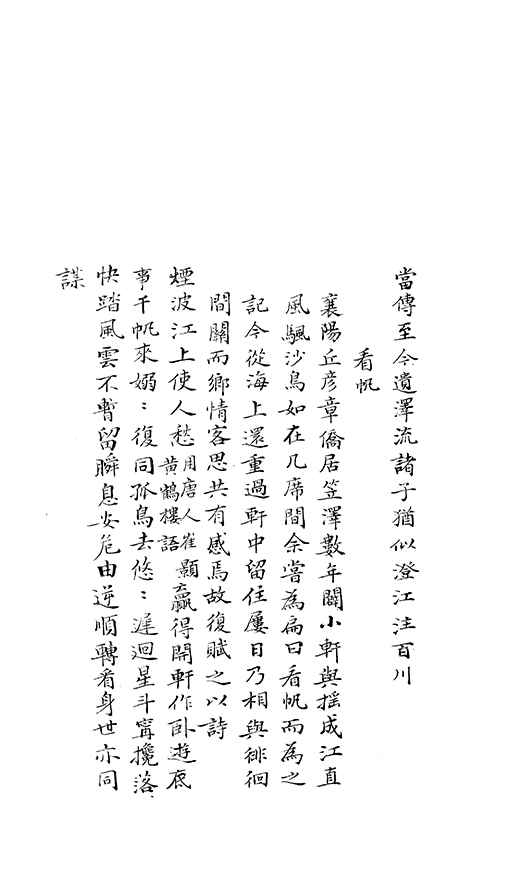 當傳至今遺澤流諸子猶似澄江注百川
看帆
襄陽丘彥章僑居笠澤數年闢小軒與搖成江直
風颿沙鳥如在几席間余嘗為扁曰看帆而為之
記今從海上還重過軒中留住屢日乃相與徘徊
間關而鄉情客思共有感焉故復賦之以詩
煙波江上使人愁用唐人崔顥黃鶴樓語贏得開軒作臥遊底
事千帆來嫋〻復同孤鳥去悠〻遲迴星斗寗攙落
快踏風雲不暫留瞬息安危由逆順轉看身世亦同
謀